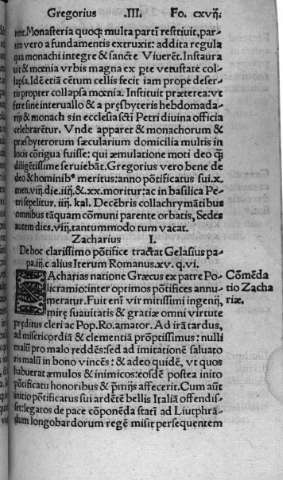 Gregorius .III. Fo. cxvij.
rent. Monasteria quoqȝ multa partī restituit, par-
tim vero a fundamentis extruxit: addita regula
qui monachi integre & sancte Viuerēt. Instaura
uit & mœnia vrbis magna ex pte vetustate colꝭ-
psa. Id etiā cētum cellis fecit iam prope deser-
tis propter collapsa mœnia. Instituit præterea: vt
sine interuallo & a pręsbyteris hebdomada-
rijs & monach sin ecclesia scti Petri diuina officia
celebrarētur. Vnde apparet & monachorum &
præsbyterorum sæcularium domicilia multis in
locis cōtigua fuisse: qui æmulatione moti deo qȝ
diligētissime seruiebāt. Gregorius vero bene de
deo & hominibꝰ meritus: anno pōtificatus sui.x.
men. viij. die. iiij. &. xx. moritur: ac in basilica Pe-
tri sepelitur. iiij. kal. Decēbris collachrymātibus
omnibus tāquam cōmuni parente orbatis, Sedes
autem dies. viij. tantummodo tum vacat.
Zacharius I.
De hoc clarissimo pōtifice tractat Gelasius pa-
pa. iij. c alius Iterum Romanus. xv. q. vi.
ZAcharias natione Græcus ex patre Po-
licramio: inter optimos pōtifices annu-
meratur. Fuit enī vir mitissimi ingenij,
mire suauitatis & gratiæ omni virtute
præditus cleri ac Pop. Ro. amator. Ad irā tardus,
ad misericordiā & clementiā prōptissimus: nulli
malū pro malo reddēs: sed ad imitationē saluato
ris malū in bono vincēs: & adeo quidē, vt quos
habuerat æmulos & inimicos: eosdē postea inito
pōtificatu honoribus & pmijs affecerit. Cum aūt
initio pōtificatus sui ardētē bellis Italiā offendis-
set: legatos de pace cōponēda statī ad Liutphrā-
dum longobardorum regē misit persequentem
Cōmēda
tio Zacha
riæ.